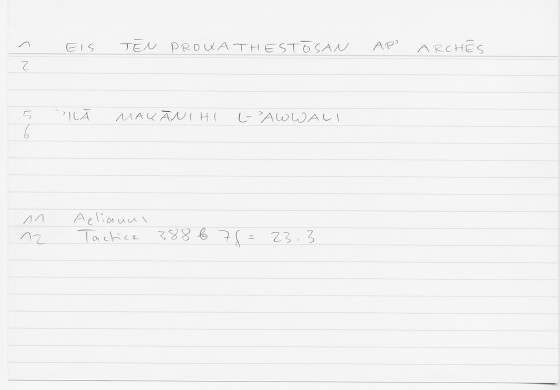 1 EIS TĒN PROKATHESTŌSAN AP' ARCHĒS
2
5 'ILĀ MAKĀNIHI L-'AWWALI
6
11 Aelianus
12 Tactica 388 b 7f = 23.3